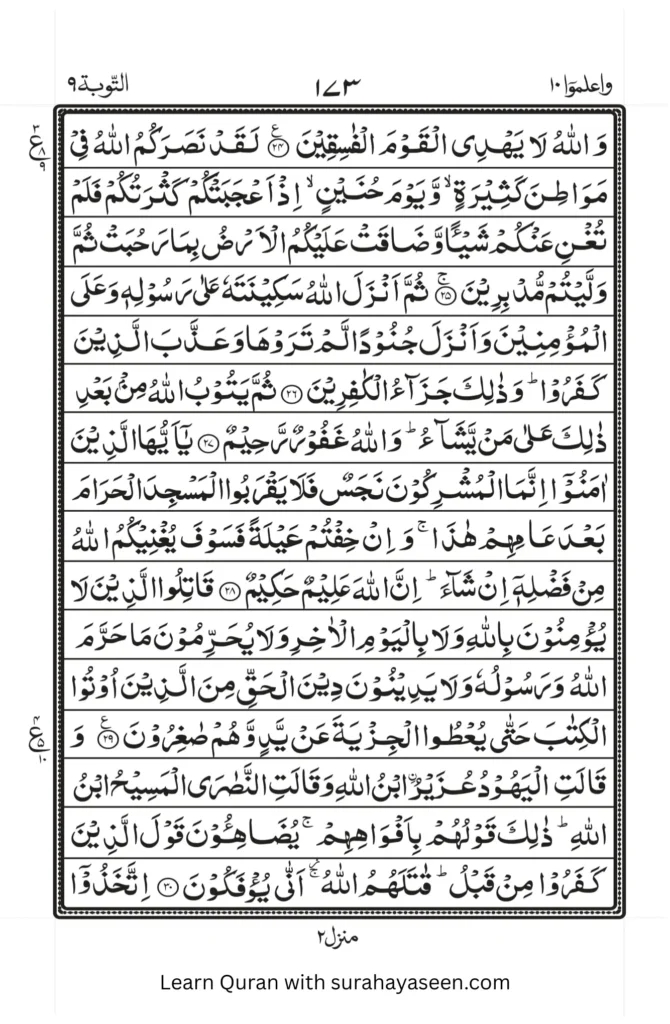 واعلموا ١٠
١٧٣
التوبة ٩
وَ اللّٰهُ لَا یَهْدِی الْقَوْمَ الْفٰسِقِیْنَ ﴿۲۴﴾ ع لَقَدْ نَصَرَكُمُ اللّٰهُ فِیْ
مَوَاطِنَ كَثِیْرَةٍ ۙ وَّ یَوْمَ حُنَیْنٍ ۙ اِذْ اَعْجَبَتْكُمْ كَثْرَتُكُمْ فَلَمْ
تُغْنِ عَنْكُمْ شَیْـًٔا وَّ ضَاقَتْ عَلَیْكُمُ الْاَرْضُ بِمَا رَحُبَتْ ثُمَّ
وَلَّیْتُمْ مُّدْبِرِیْنَ ۚ﴿۲۵﴾ ثُمَّ اَنْزَلَ اللّٰهُ سَكِیْنَتَهٗ عَلٰی رَسُوْلِهٖ وَ عَلَی
الْمُؤْمِنِیْنَ وَ اَنْزَلَ جُنُوْدًا لَّمْ تَرَوْهَا وَ عَذَّبَ الَّذِیْنَ
كَفَرُوْا ؕ وَ ذٰلِكَ جَزَآءُ الْكٰفِرِیْنَ ﴿۲۶﴾ ثُمَّ یَتُوْبُ اللّٰهُ مِنْۢ بَعْدِ
ذٰلِكَ عَلٰی مَنْ یَّشَآءُ ؕ وَ اللّٰهُ غَفُوْرٌ رَّحِیْمٌ ﴿۲۷﴾ یٰۤاَیُّهَا الَّذِیْنَ
اٰمَنُوْۤا اِنَّمَا الْمُشْرِكُوْنَ نَجَسٌ فَلَا یَقْرَبُوا الْمَسْجِدَ الْحَرَامَ
بَعْدَ عَامِهِمْ هٰذَا ۚ وَ اِنْ خِفْتُمْ عَیْلَةً فَسَوْفَ یُغْنِیْكُمُ اللّٰهُ
مِنْ فَضْلِهٖۤ اِنْ شَآءَ ؕ اِنَّ اللّٰهَ عَلِیْمٌ حَكِیْمٌ ﴿۲۸﴾ قَاتِلُوا الَّذِیْنَ لَا
یُؤْمِنُوْنَ بِاللّٰهِ وَ لَا بِالْیَوْمِ الْاٰخِرِ وَ لَا یُحَرِّمُوْنَ مَا حَرَّمَ
اللّٰهُ وَ رَسُوْلُهٗ وَ لَا یَدِیْنُوْنَ دِیْنَ الْحَقِّ مِنَ الَّذِیْنَ اُوْتُوا
الْكِتٰبَ حَتّٰی یُعْطُوا الْجِزْیَةَ عَنْ یَّدٍ وَّ هُمْ صٰغِرُوْنَ ﴿۲۹﴾ ع وَ
قَالَتِ الْیَهُوْدُ عُزَیْرُ ِ۟ابْنُ اللّٰهِ وَ قَالَتِ النَّصٰرَی الْمَسِیْحُ ابْنُ
اللّٰهِ ؕ ذٰلِكَ قَوْلُهُمْ بِاَفْوَاهِهِمْ ۚ یُضَاهِـُٔوْنَ قَوْلَ الَّذِیْنَ
كَفَرُوْا مِنْ قَبْلُ ؕ قٰتَلَهُمُ اللّٰهُ ۚ۫ اَنّٰی یُؤْفَكُوْنَ ﴿۳۰﴾ اِتَّخَذُوْۤا
منزل ٢
Learn Quran with surahayaseen.com